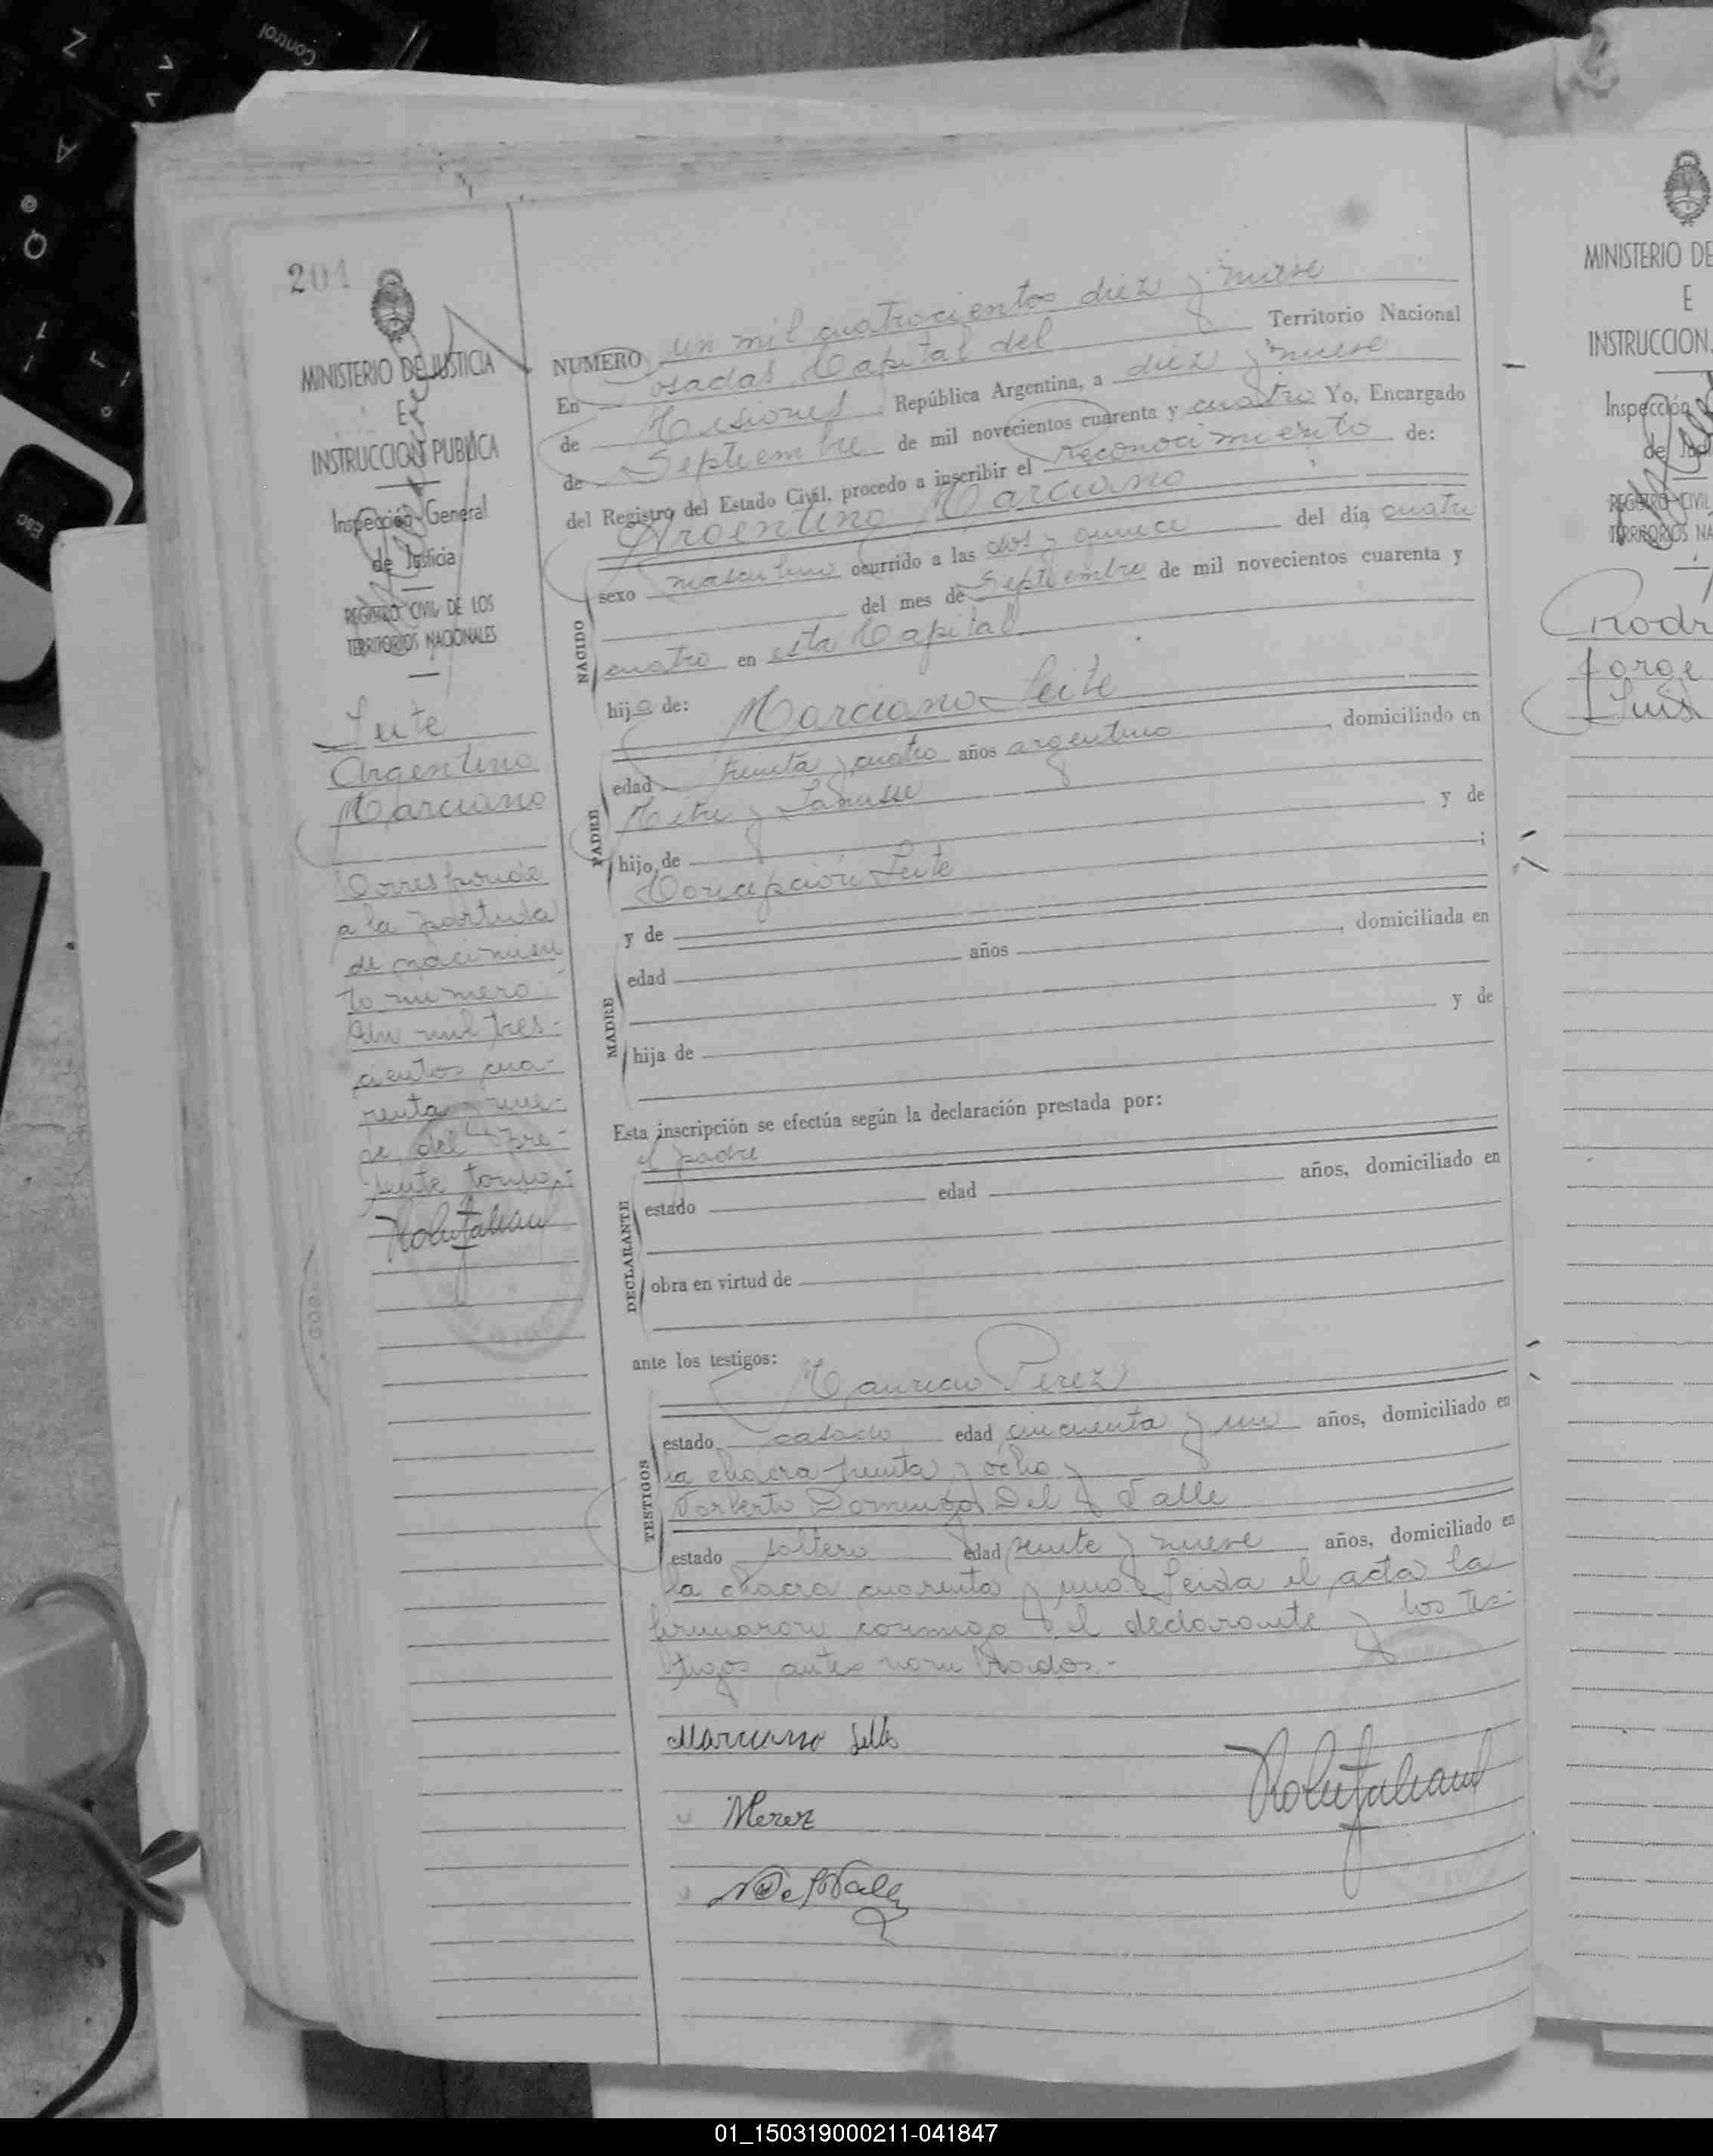 control
Z
A
Q
esc
201
MINISTERIO DE JUSTICIA
E
INSTRUCCION PUBLICA
Inspección General
de Justicia
REGISTRO CIVIL DE LOS
TERRITORIOS NACIONALES
Leite
Argentino
Marciano
Corresponde
a la partida
de nacimien
to número
Un mil tres-
cientos cua-
renta y nue-
ve del pre-
sente tomo.-
NUMERO un mil cuatrocientos diez y nueve
En Posadas Capital del Territorio Nacional
de Misiones República Argentina, a diez y nueve
de Septiembre de mil novecientos cuarenta y cuatro Yo, Encargado
del Registro del Estado Civil, procedo a inscribir el reconocimiento de:
Argentino Marciano
NACIDO
sexo masculino ocurrido a las dos y quince del día cuatro
del mes de Septiembre de mil novecientos cuarenta y
cuatro en esta Capital
hijo de: Marciano Leite
PADRE
edad treinta y cuatro años argentino, domiciliado en
Mitre y Lanusse
hijo de y de
Concepción Leite ;
y de
MADRE
edad años , domiciliada en
hija de y de
Esta inscripción se efectúa según la declaración prestada por:
el padre
DECLARANTE
estado edad años, domiciliado en
obra en virtud de
ante los testigos:
Mauricio Perez
TESTIGOS
estado casado edad cincuenta y un años, domiciliado en
la chacra treinta y ocho y
Norberto Domingo Del Valle
estado soltero edad veinte y nueve años, domiciliado en
la chacra cuarenta y uno Leida el acta la
firmaron conmigo el declarante y los tes-
tigos antes nombrados.-
Marciano
MPerez
NDelValle
MINISTERIO DE
E
INSTRUCCION
Inspección
de Just
REGISTRO CIVIL
TERRITORIOS NA
Rodr
Jorge
Luis
01_150319000211-041847